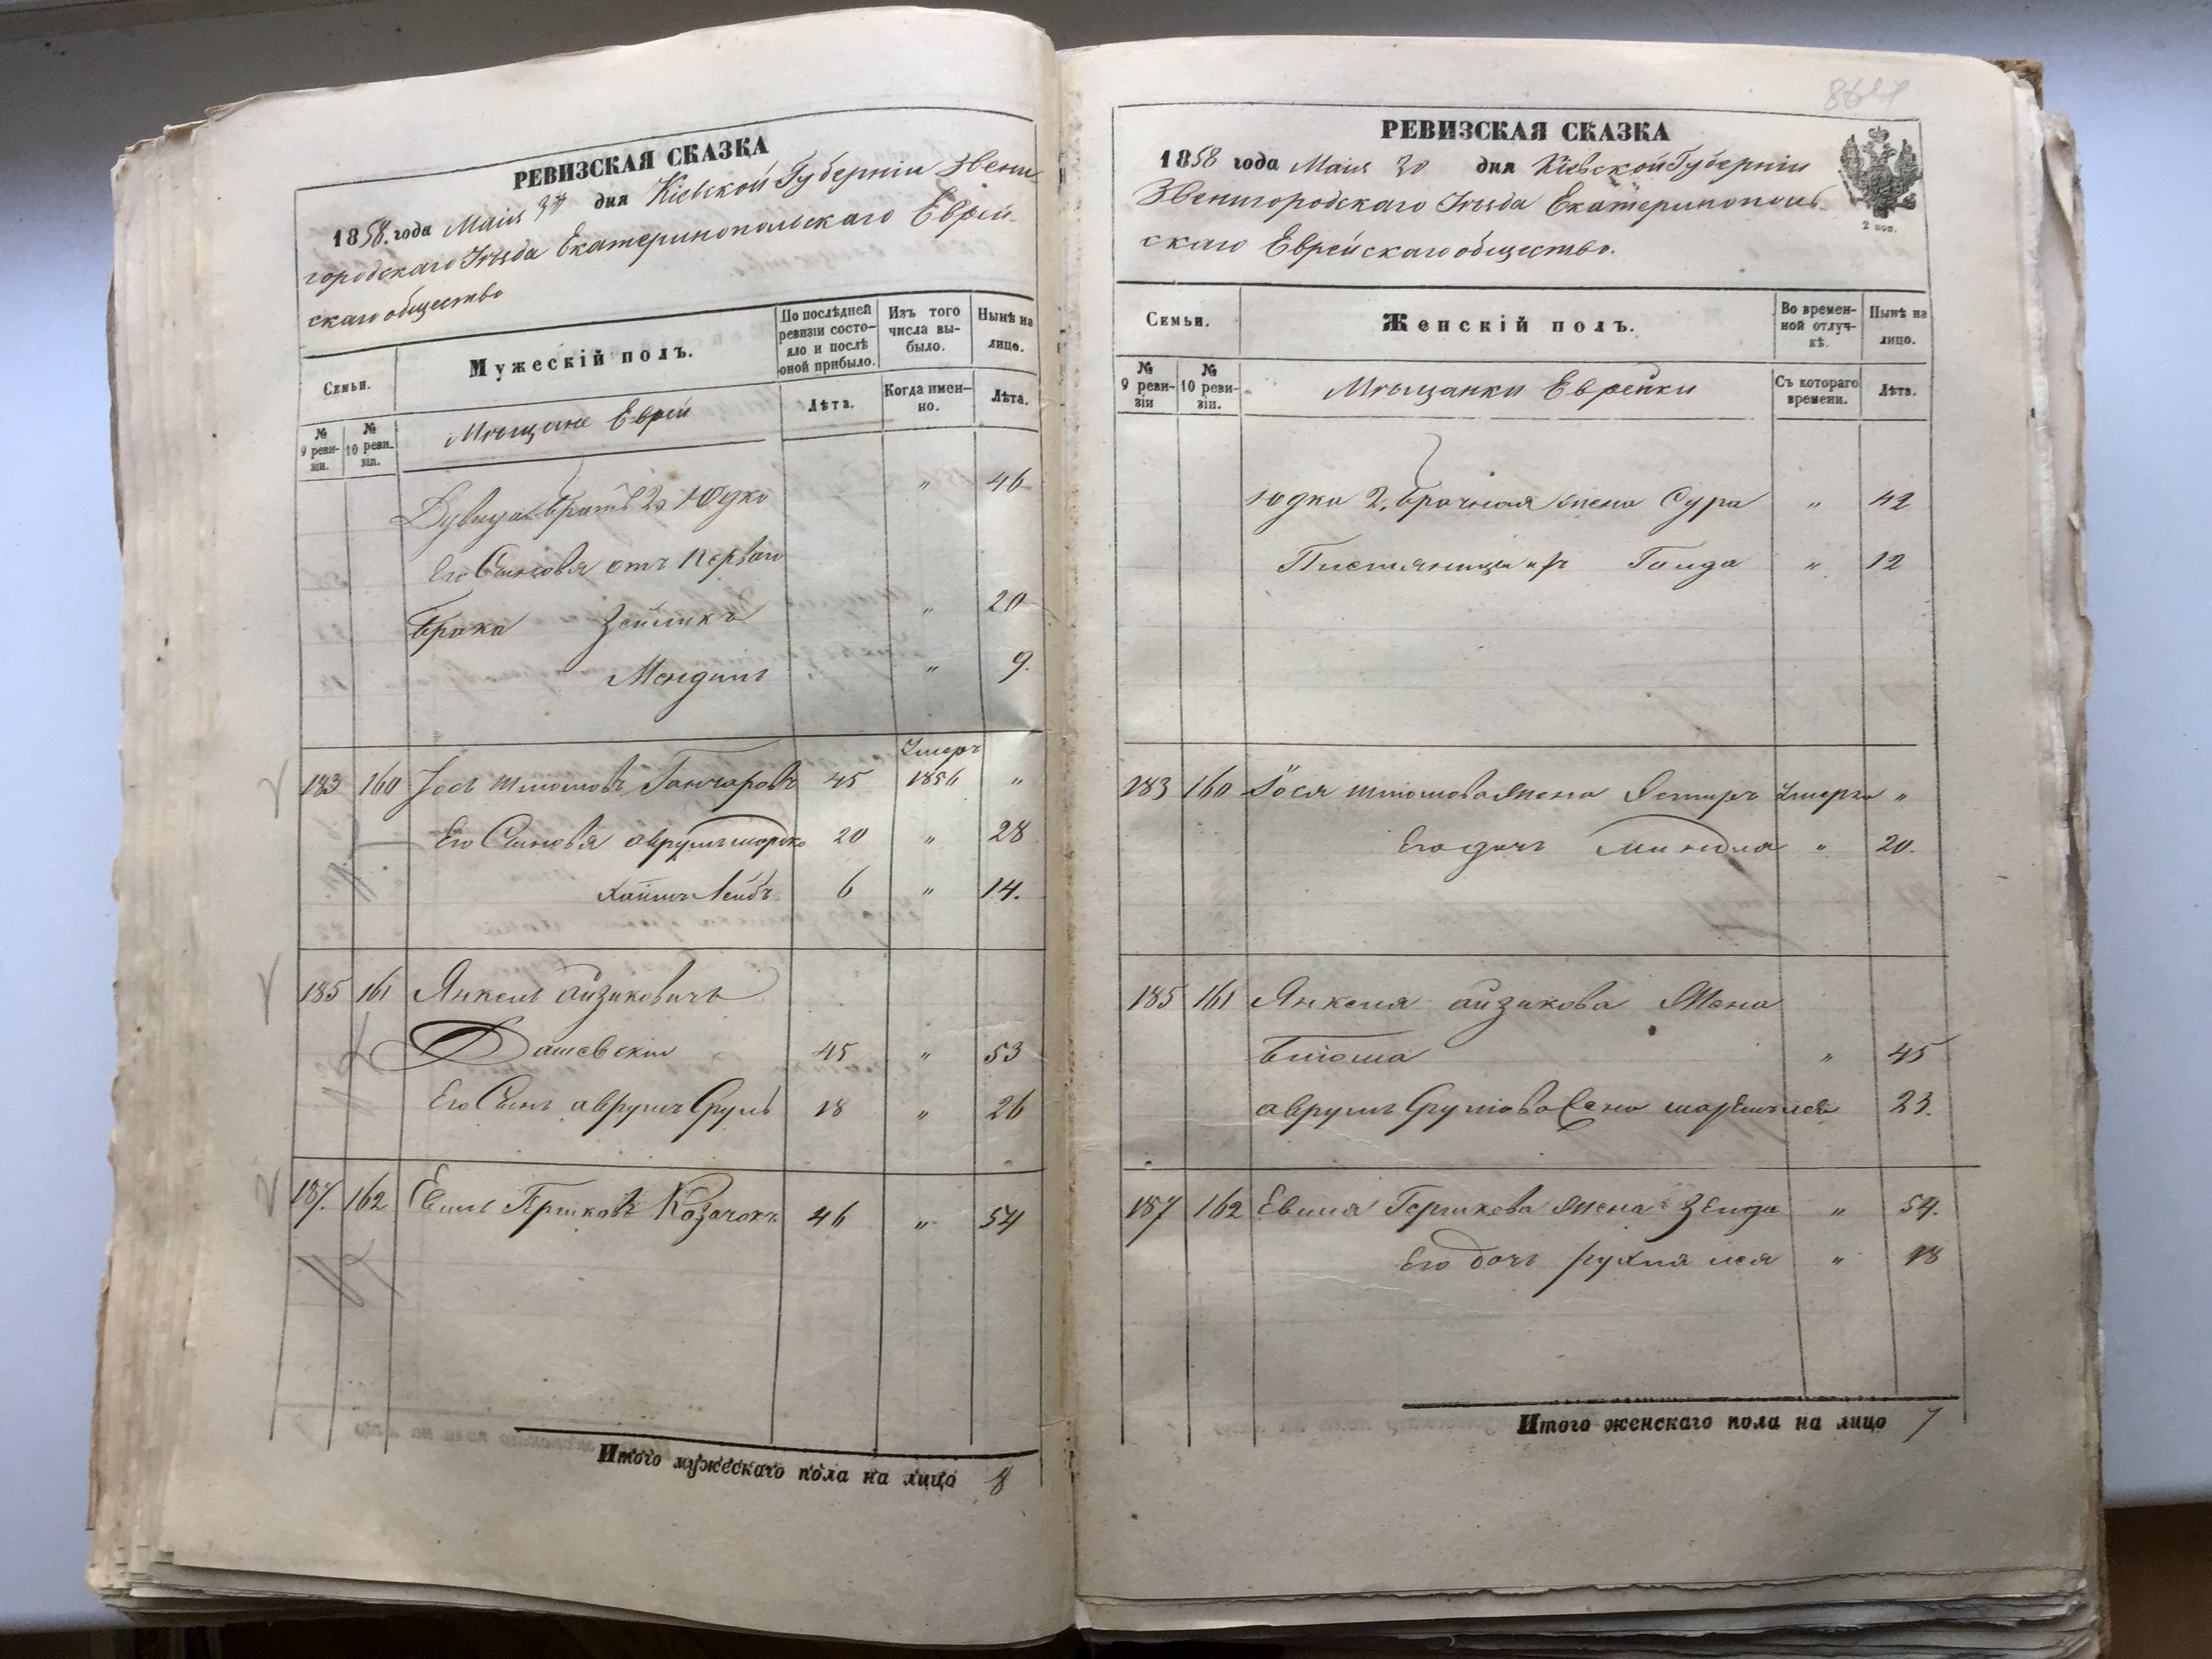 РЕВИЗСКАЯ СКАЗКА
1858. года Маія 30 дня Кіевской Губерніи Звени-
городскаго Уѣзда Екатеринопольскаго Еврей-
скаго общество
Семьи.
Мужескій полъ.
По послѣдней ревизіи состояло и послѣ оной прибыло.
Изъ того числа выбыло.
Нынѣ на лицо.
№ 9 ревизіи.
№ 10 ревизіи.
Мѣщане Евреи
Лѣта.
Когда именно.
Лѣта.
братъ 2й Юдко " 46
Его Сыновья отъ перваго
брака Зейликъ " 20
Мендиль " 9.
183 160 Іось Гончаровъ 45 Умеръ 1856 "
Его Сыновья аврумъ 20 " 28
Хаимъ Лейбъ 6 " 14.
185 161 Янкель айзиковичъ
Дашевскій 45 " 53
Его Сынъ аврумъ Сруль 18 " 26
187. 162 Евель Гершковъ Козачокъ 46 " 54
Итого мужескаго пола на лицо 8
РЕВИЗСКАЯ СКАЗКА
1858 года Маія 30 дня Кіевской Губерніи
Звенигородскаго Уѣзда Екатеринополь-
скаго Еврейскаго общество.
2 коп.
Семьи.
Женскій полъ.
Во временной отлучкѣ.
Нынѣ на лицо.
№ 9 ревизіи
№ 10 ревизіи.
Мѣщанки Еврейки
Съ котораго времени.
Лѣта.
Юдка 2. брачная жена Сура " 42
" 12
183 160 Іося жена Естеръ Умерла "
Его дочь Миндля " 20.
185 161 Янкеля айзикова Жена
" 45
аврумъ Жена 23.
187 162 Евеля Гершкова жена Зелда " 54.
Его дочь рухля лея " 18
Итого женскаго пола на лицо 7